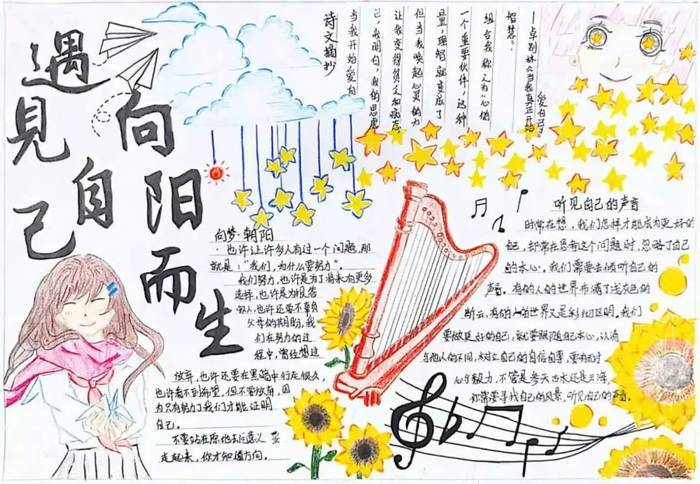 遇見自己
向阳而生
诗文摘抄
当我开始爱自
己,我明白,我的思虑
让我变得贫乏和病态
但当我唤起心灵的力
量,理智就变成了
一个重要伙伴,这种
组合我称之为“心的
智慧”。
——卓别林《当我真正开始
爱自己》
向梦·朝阳
也许让许多人有过一个问题,那
就是:“我们,为什么要努力”。
我们努力,也许是为了将来有更多
选择,也许是为报答
他人,也许还要不辜负
父母的期盼,我
们在努力的过
程中,曾经想过
放弃,也许还要在黑暗中行走很久,
也许看不到希望,但不要放弃,因
为只有努力了我们才能证明
自己。
不要站在原地去问意义
走起来,你才知道方向。
听见自己的声音
时常在想,我们怎样才能成为更好的自
己,却常在思考这个问题时,忽略了自己
的本心,我们需要去倾听自己的
声音。有的人的世界布满了浅灰色的
断云,有的人的世界又是彩幻透明,我们
要做更好的自己,就要跟随自己本心,认清
与他人的不同,
心与毅力,不管是
你需要寻找自己的风景,听见自己的声音。